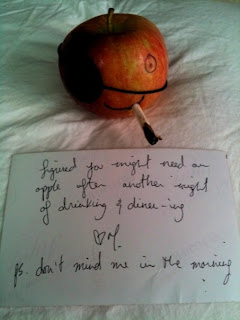 figured you might need an
apple after another night
of drinking & dinner-ing
♡M.
ps. don't mind me in the morning